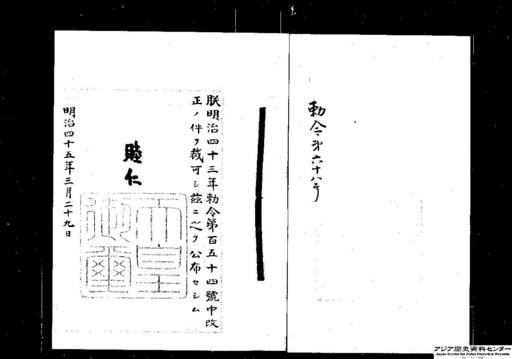 勅令第六十八号
朕明治四十三年勅令第百五十四號中改
正ノ件ヲ裁可シ茲ニ之ヲ公布セシム
睦仁
天皇
御璽
明治四十五年三月二十九日
アジア歴史資料センター
Japan Center for Asian Historical Records